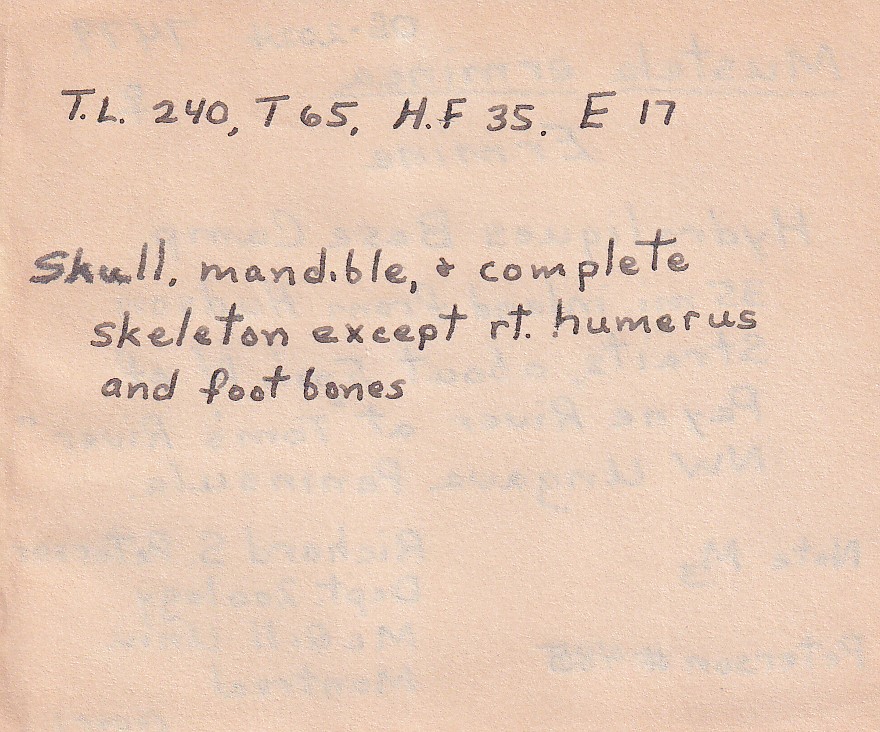 T.L. 240, T 65, H.F 35. E 17
Skull, mandible, & complete
skeleton except rt. humerus
and foot bones